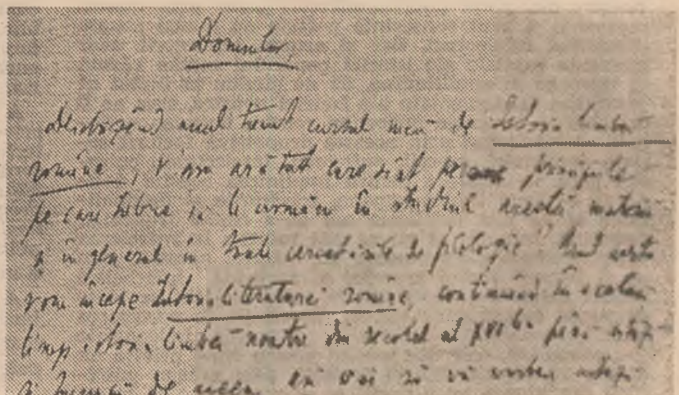 Domnilor,
deschizând anul trecut cursul meu de Istoria limbei
române, v'am arătat care sînt principiile
pe care trebue să le urmăm în studiul acestei materii
și în general în toate cercetările de filologie. Anul acesta
vom începe Istoria literaturei române, continuând în acelaș
timp istoria limbei noastre din secolul al XVI-lea până astăzi
de aceea, să vă vorbesc astăzi